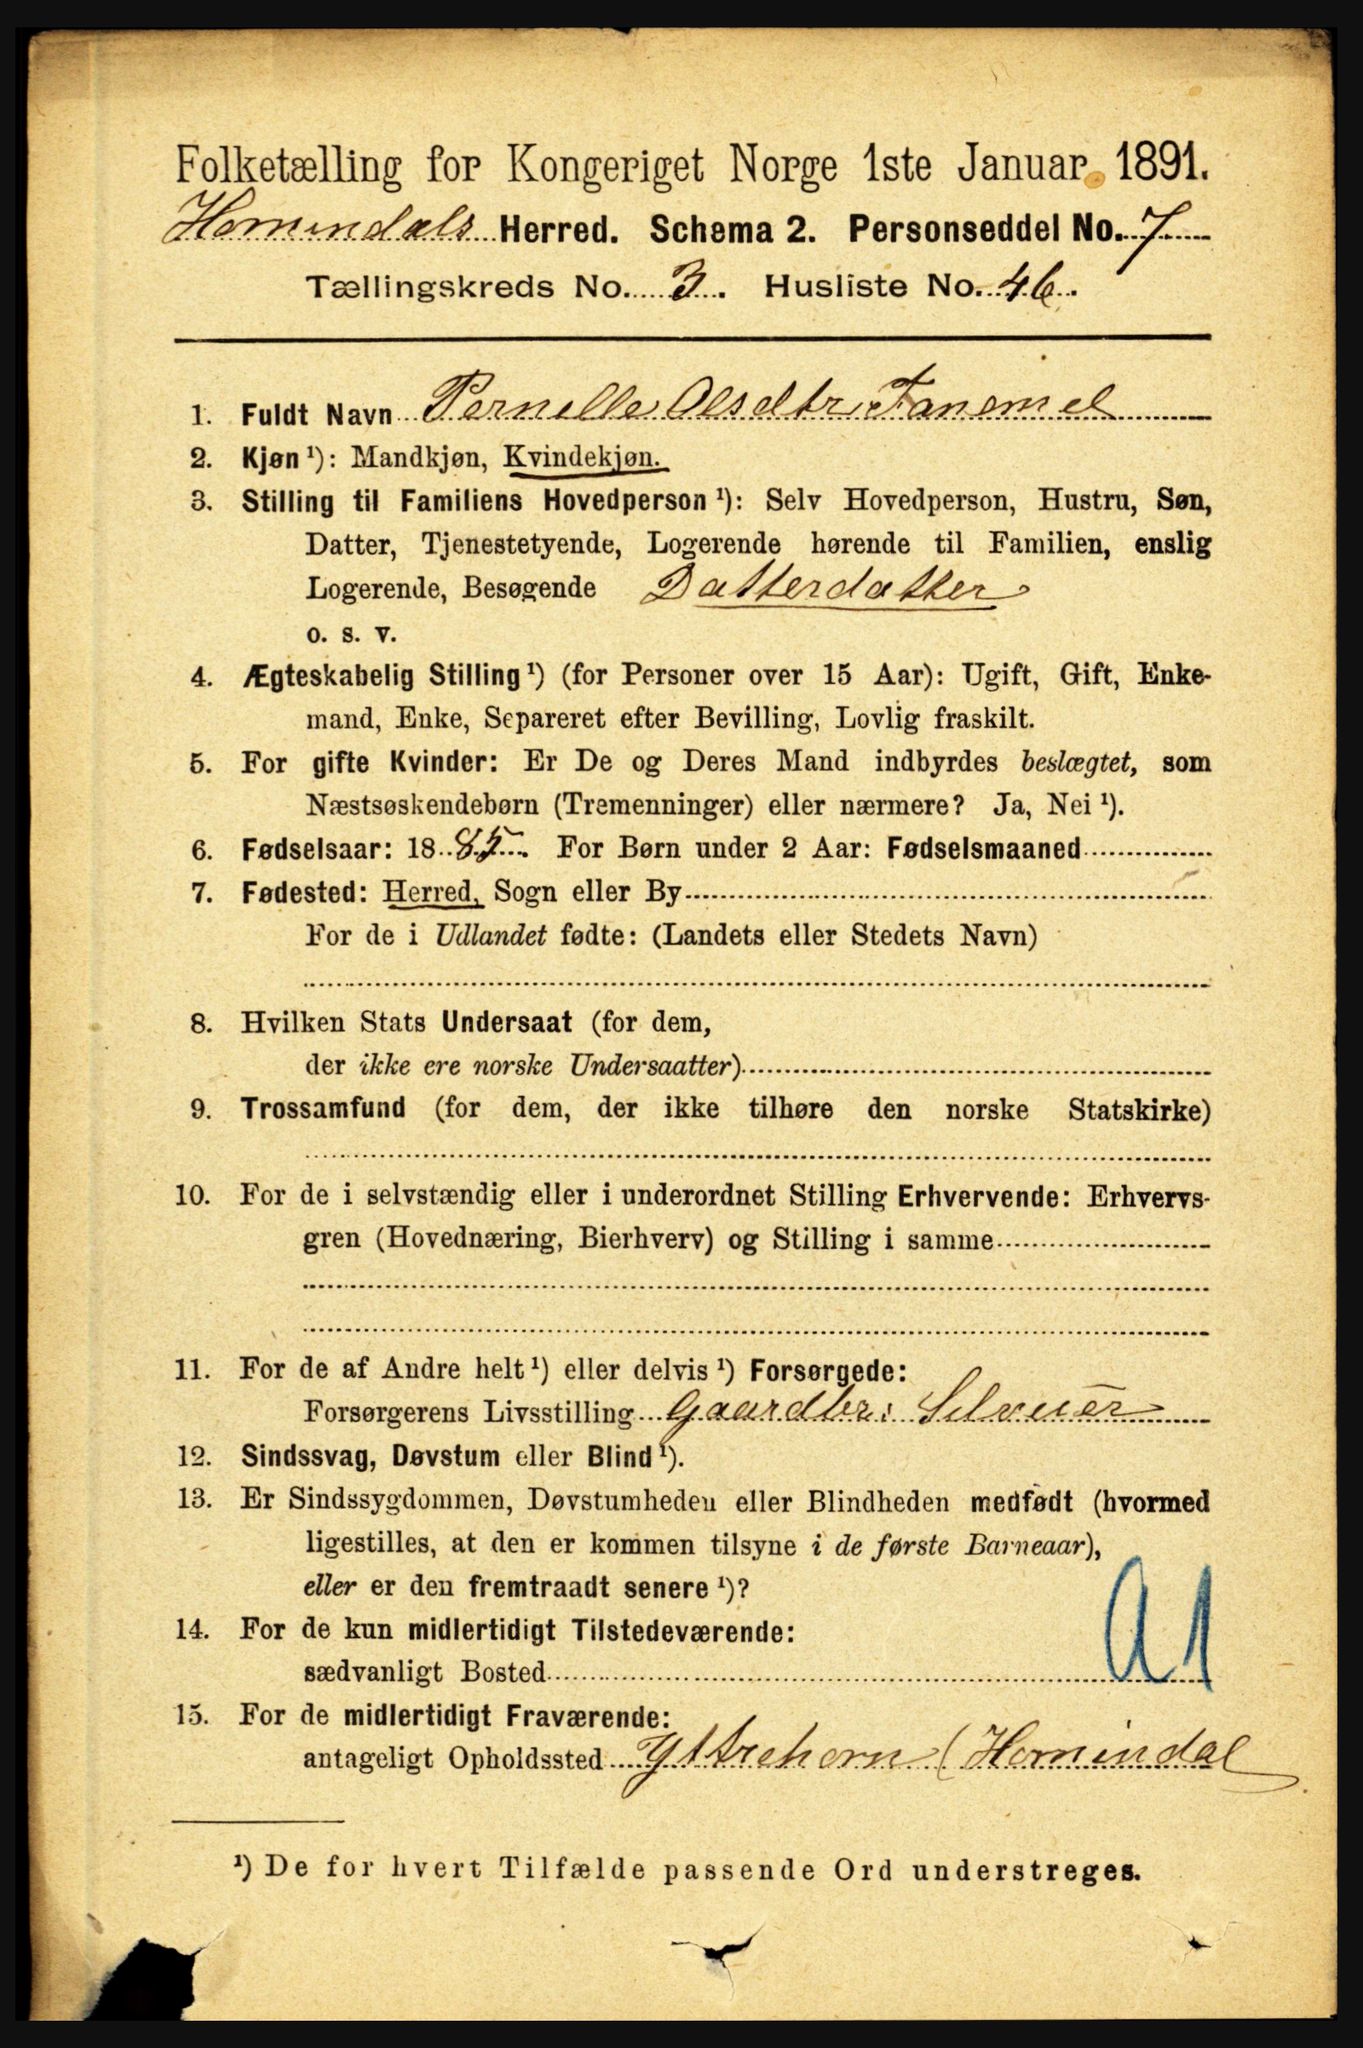 Folketælling for Kongeriget Norge 1ste Januar 1891.
Homindals Herred. Schema 2. Personseddel No. 7
Tællingskreds No. 3. Husliste No. 46.
1. Fuldt Navn Pernille Olsdtr Fanemel
2. Kjøn ¹): Mandkjøn, Kvindekjøn.
3. Stilling til Familiens Hovedperson ¹): Selv Hovedperson, Hustru, Søn,
Datter, Tjenestetyende, Logerende hørende til Familien, enslig
Logerende, Besøgende Datterdatter
o. s. v.
4. Ægteskabelig Stilling ¹) (for Personer over 15 Aar): Ugift, Gift, Enke-
mand, Enke, Separeret efter Bevilling, Lovlig fraskilt.
5. For gifte Kvinder: Er De og Deres Mand indbyrdes beslægtet, som
Næstsøskendebørn (Tremenninger) eller nærmere? Ja, Nei ¹).
6. Fødselsaar: 1885. For Børn under 2 Aar: Fødselsmaaned
7. Fødested: Herred, Sogn eller By
For de i Udlandet fødte: (Landets eller Stedets Navn)
8. Hvilken Stats Undersaat (for dem,
der ikke ere norske Undersaatter)
9. Trossamfund (for dem, der ikke tilhøre den norske Statskirke)
10. For de i selvstændig eller i underordnet Stilling Erhvervende: Erhvervs-
gren (Hovednæring, Bierhverv) og Stilling i samme
11. For de af Andre helt ¹) eller delvis ¹) Forsørgede:
Forsørgerens Livsstilling Gaardbr: Selveier
12. Sindssvag, Døvstum eller Blind ¹).
13. Er Sindssygdommen, Døvstumheden eller Blindheden medfødt (hvormed
ligestilles, at den er kommen tilsyne i de første Barneaar),
eller er den fremtraadt senere ¹)?
14. For de kun midlertidigt Tilstedeværende:
sædvanligt Bosted
a1
15. For de midlertidigt Fraværende:
antageligt Opholdssted Yttrehorn (Homindal
¹) De for hvert Tilfælde passende Ord understreges.